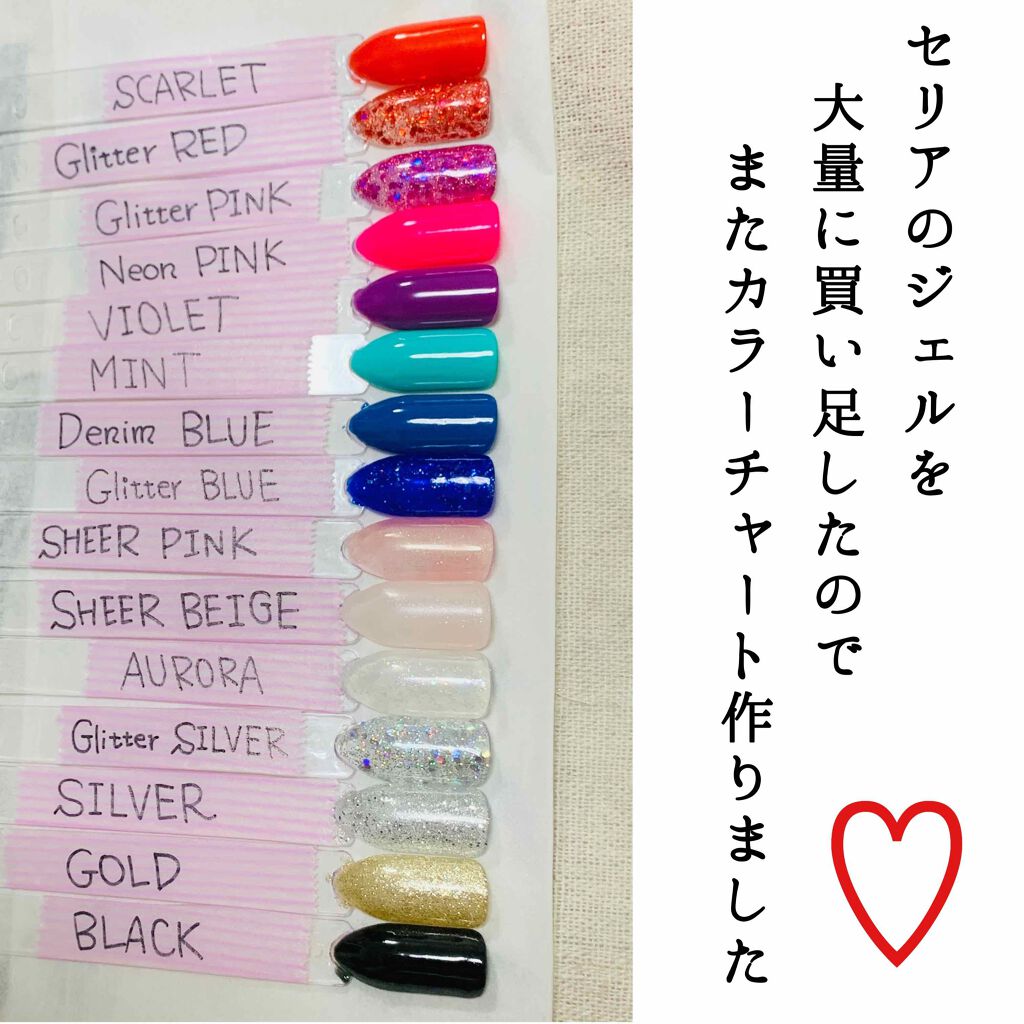 セリアのジェルを
大量に買い足したので
またカラーチャート作りました
SCARLET
Glitter RED
Glitter PINK
Neon PINK
VIOLET
MINT
Denim BLUE
Glitter BLUE
SHEER PINK
SHEER BEIGE
AURORA
Glitter SILVER
SILVER
GOLD
BLACK